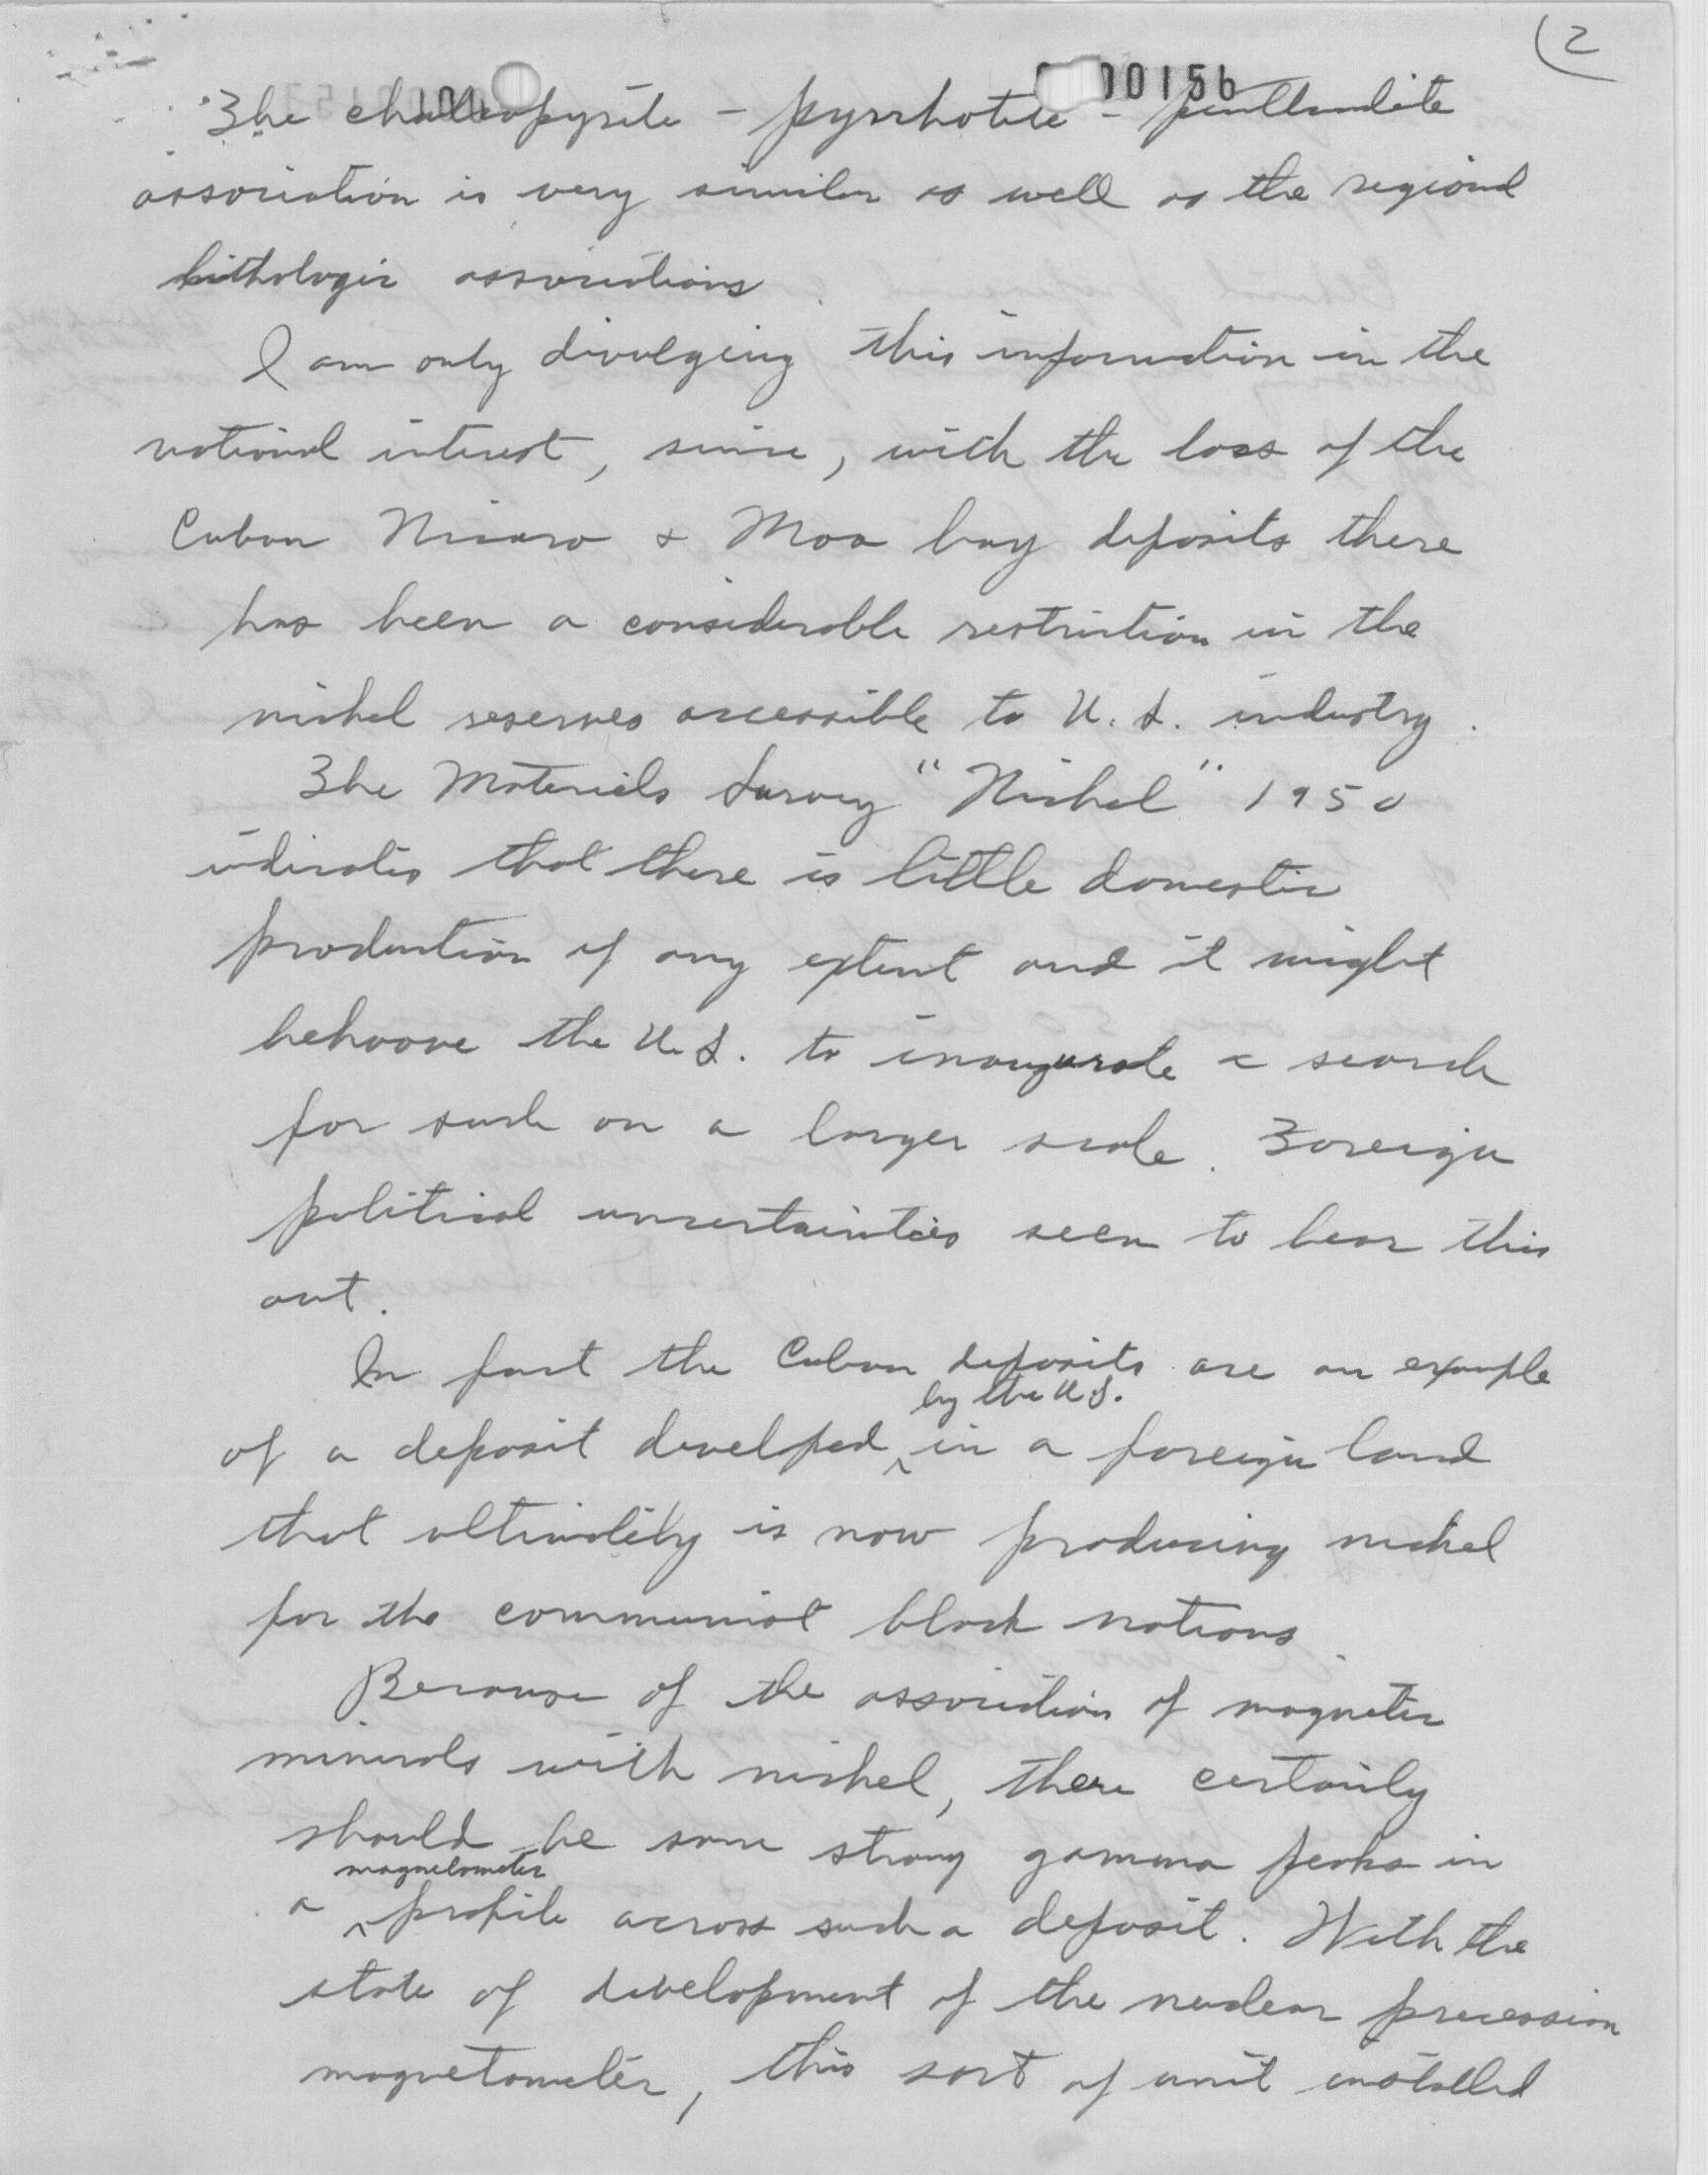 (2
00156
The chalcopyrite - pyrrhotite - pentlandite
association is very similar as well as the regional
lithologic associations.
I am only divulgeing this information in the
national interest, since, with the loss of the
Cuban Nicaro & Moa bay deposits there
has been a considerable restriction in the
nickel reserves accessible to U.S. industry.
The Materials Survey "Nickel" 1950
indicates that there is little domestic
production of any extent and it might
behoove the U.S. to inaugurate a search
for such on a larger scale. Foreign
political uncertainties seem to bear this
out.
In fact the Cuban deposits are an example
by the U.S.
of a deposit develped ^ in a foreign land
that ultimately is now producing nickel
for the communist block nations.
Because of the association of magnetic
minerals with nickel, there certainly
should be some strong gamma peaks in
magnetometer
a ^ profile across such a deposit. With the
state of development of the nuclear precession
magnetometer, this sort of unit installed